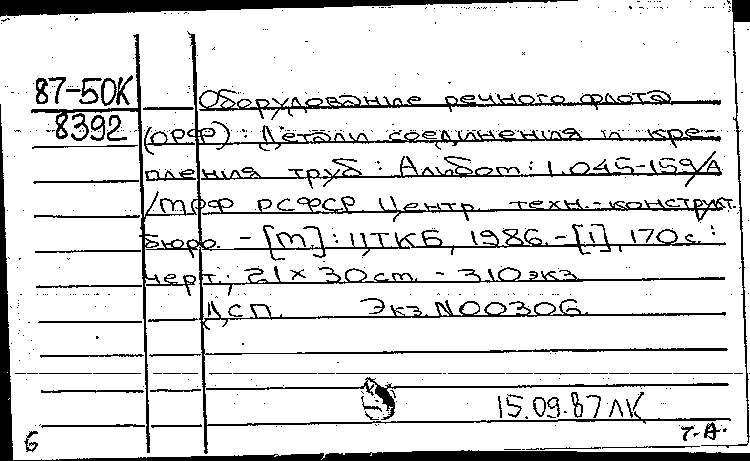 87-50К
8392
Оборудование речного флота
(ОРФ): Детали соединения и кре-
пления труб: Альбом: 1.045-159/А
/МРФ РСФСР Центр. техн.-конструкт.
бюро. - [М.]: ЦТКБ, 1986. - [1], 170 с.:
черт.; 21 × 30 см. - 310 экз
ДСП. Экз. N00306.
15.09.87 ЛК
Т.А.
6